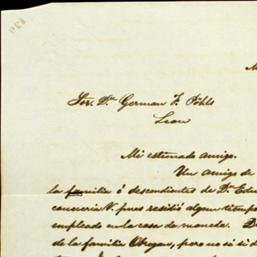 Sor. Dn. German F. Pohls
Leon
Mi estimado amigo.
Un amigo de
la familia ó descendientes de Dn. Edu
conoceria V. pues residió algun tiempo
empleado en la casa de moneda. D
de la familia Obregon, pero no si si d